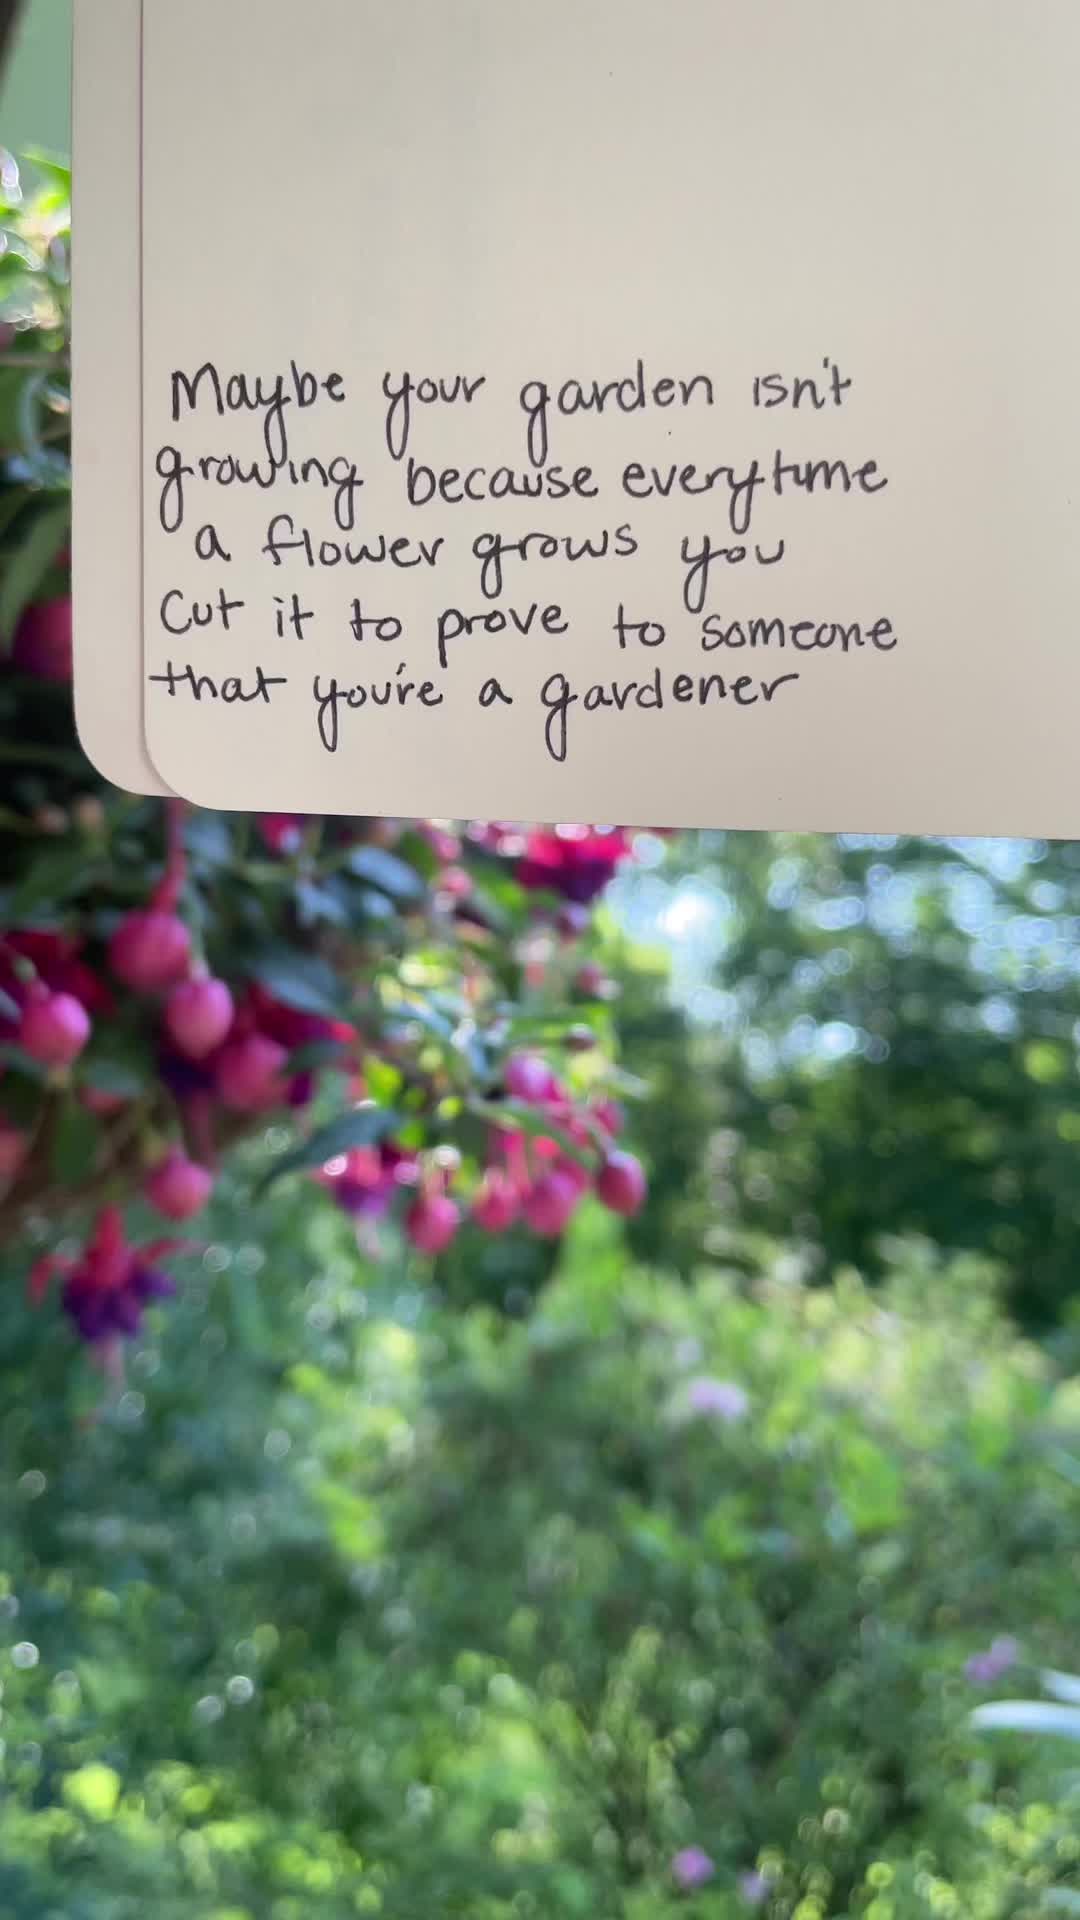 Maybe your garden isn't
growing because everytime
a flower grows you
cut it to prove to someone
that you're a gardener